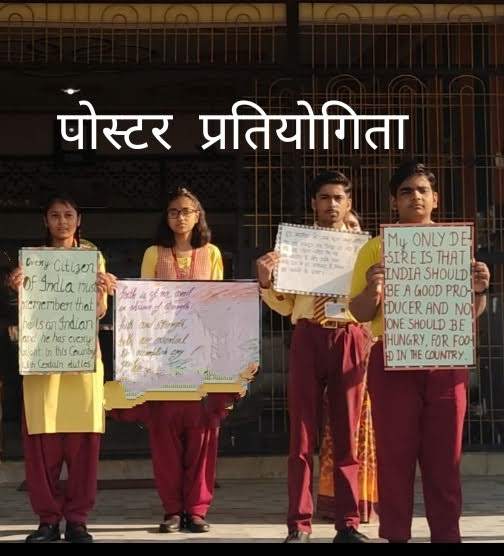 पोस्टर प्रतियोगिता
Every Citizen
Of India must
remember that
he is an Indian
and he has every
right in this Country
with Certain duties
Faith is of no avail
in absence of strength.
Faith and strength,
both are essential
to accomplish any
My ONLY DE-
SIRE IS THAT
INDIA SHOULD
BE A GOOD PRO-
DUCER AND NO
ONE SHOULD BE
HUNGRY, FOR FOO-
D IN THE COUNTRY.